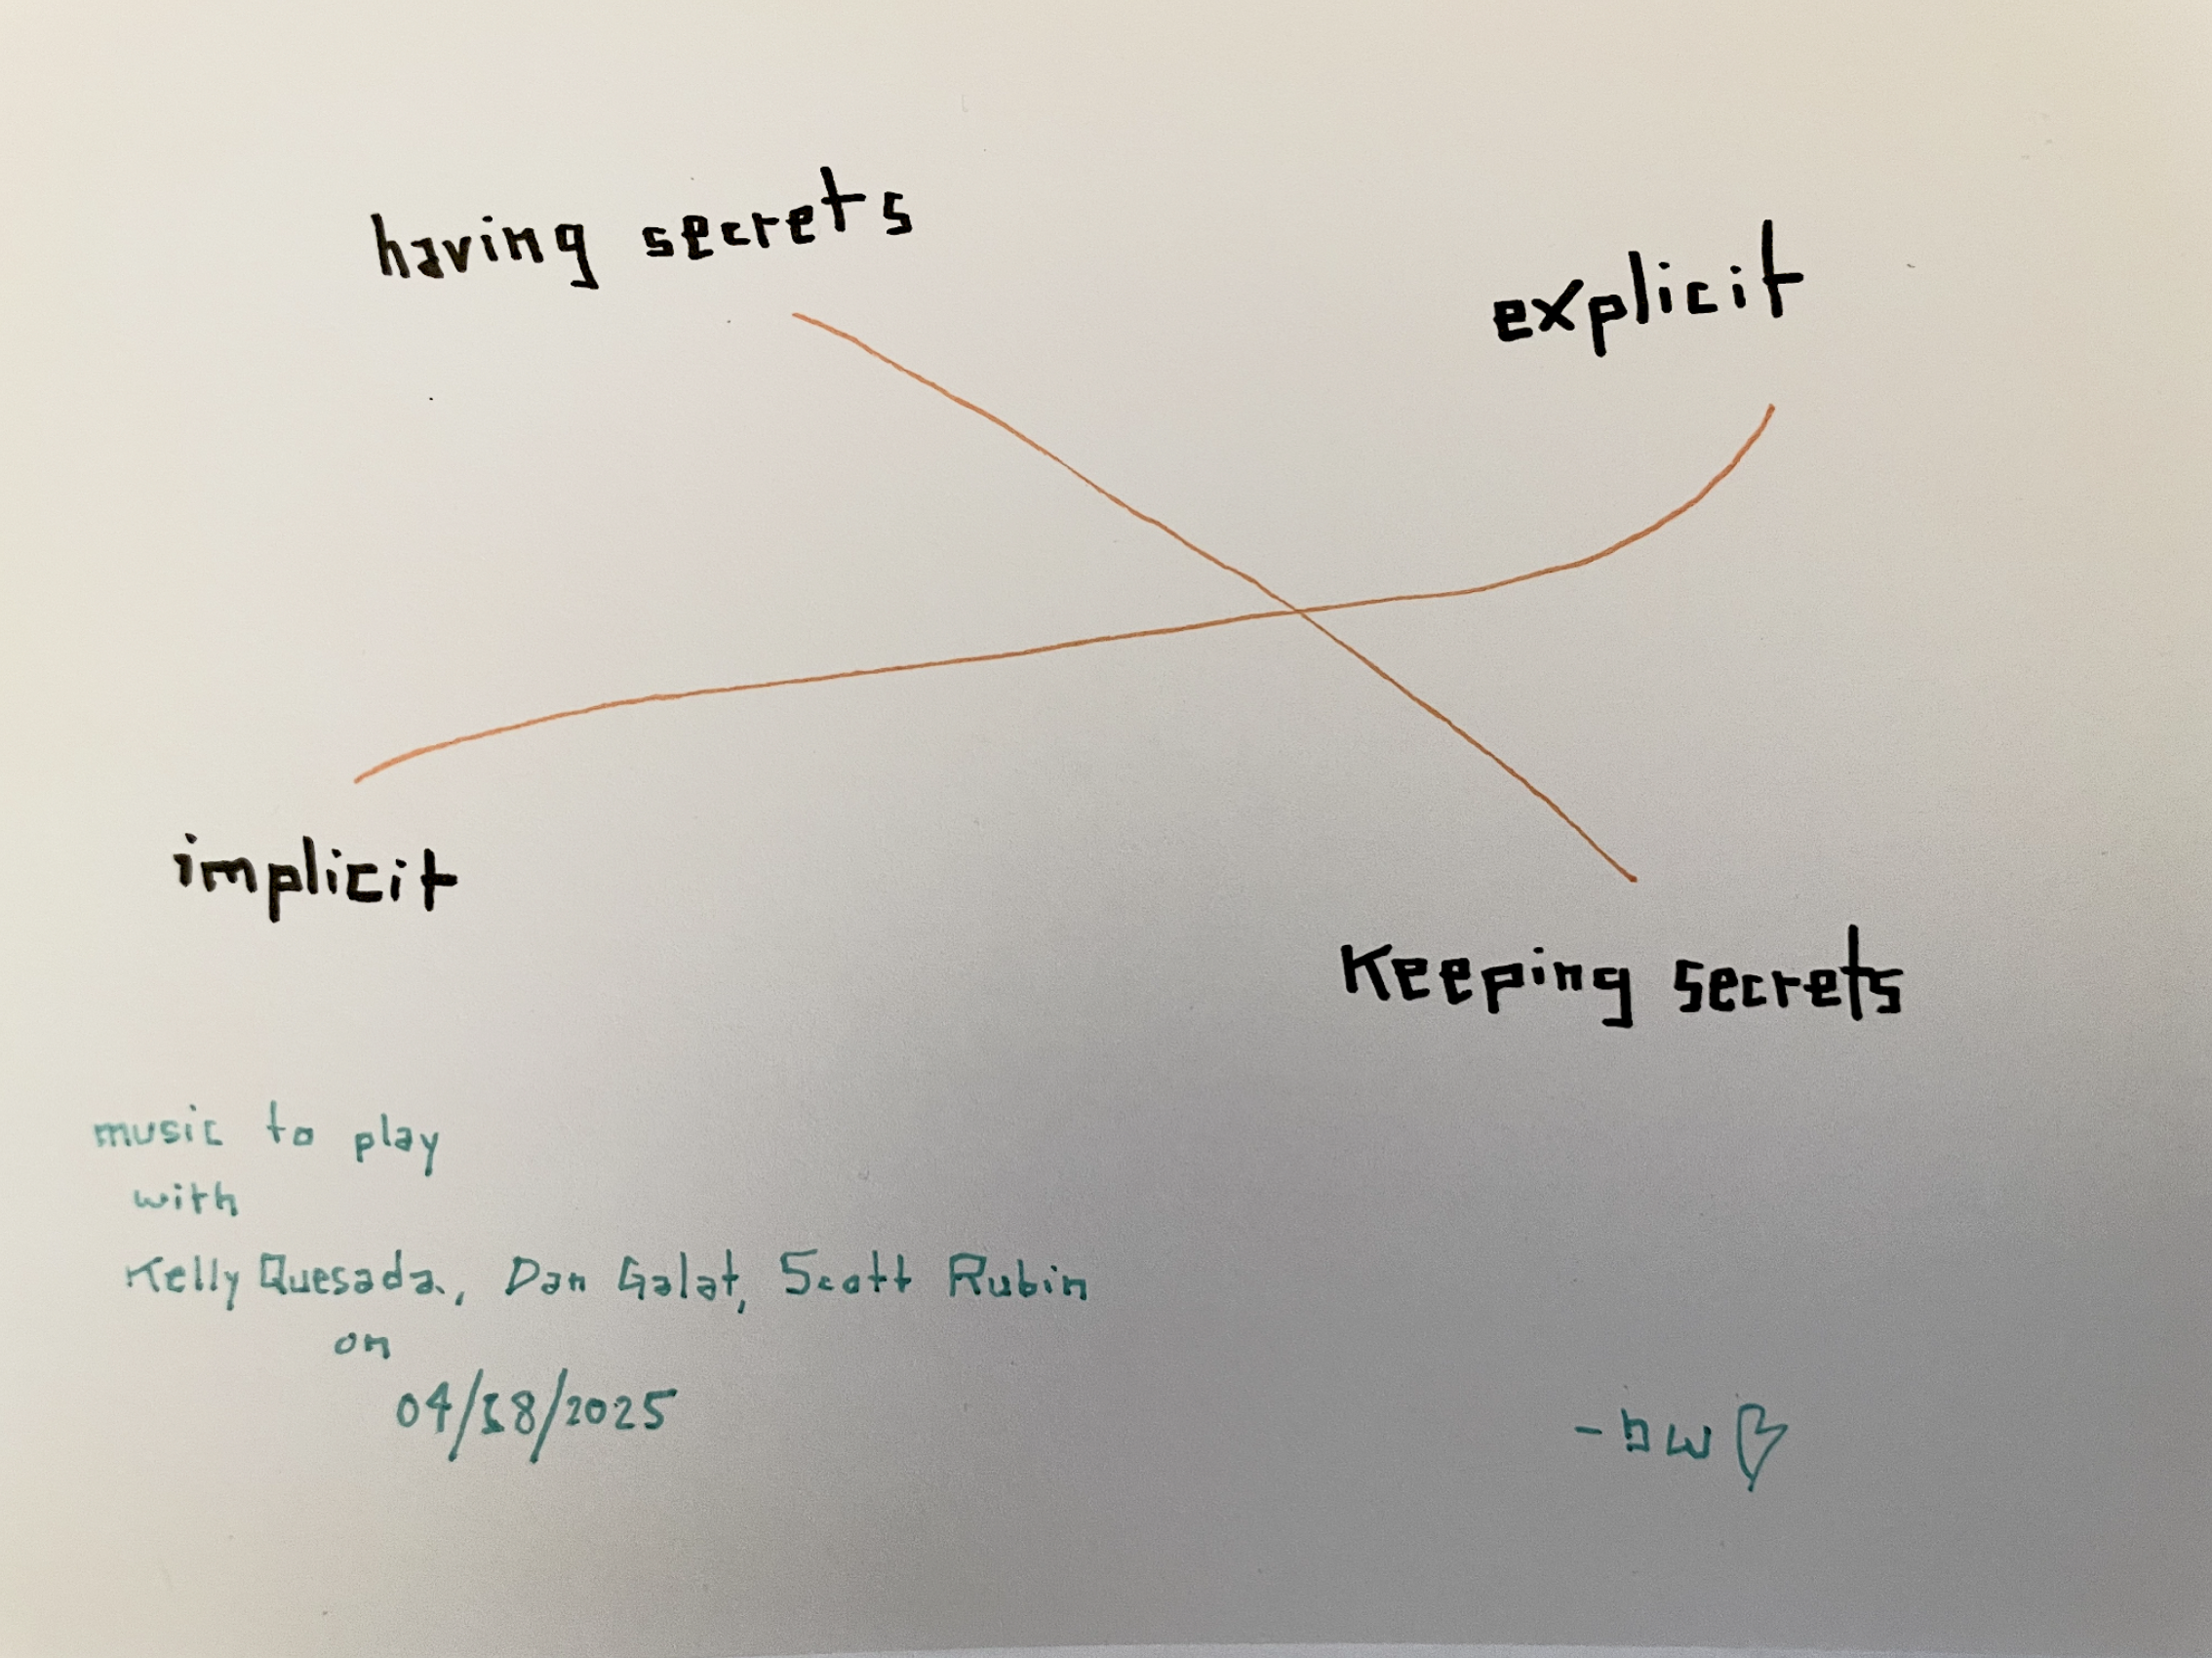 having secrets
explicit
implicit
Keeping secrets
music to play
with
Kelly Quesada, Dan Galat, Scott Rubin
on
04/18/2025